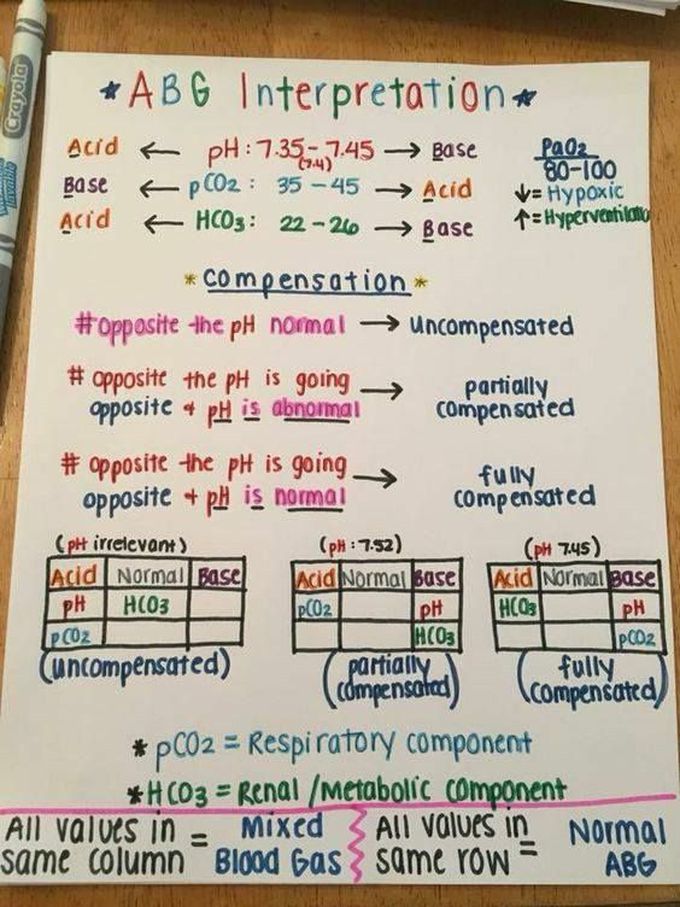 Crayola
*ABG Interpretation*
Acid ← pH: 7.35-7.45 → Base
(7.4)
Base ← pCO2: 35-45 → Acid
Acid ← HCO3: 22-26 → Base
PaO2
80-100
↓= Hypoxic
↑=Hyperventilatio
*Compensation*
#opposite the pH normal → uncompensated
# opposite the pH is going
opposite + pH is abnormal → partially
compensated
# opposite the pH is going
opposite + pH is normal → fully
compensated
(pH irrelevant)
Acid Normal Base
pH HCO3
pCO2
(uncompensated)
(pH: 7.52)
Acid Normal Base
pCO2 pH
HCO3
(partially
compensated)
(pH 7.45)
Acid Normal Base
HCO3 pH
pCO2
(fully
compensated)
*pCO2 = Respiratory component
*HCO3 = Renal/Metabolic component
All values in
same column = Mixed
Blood Gas
All values in
same row = Normal
ABG